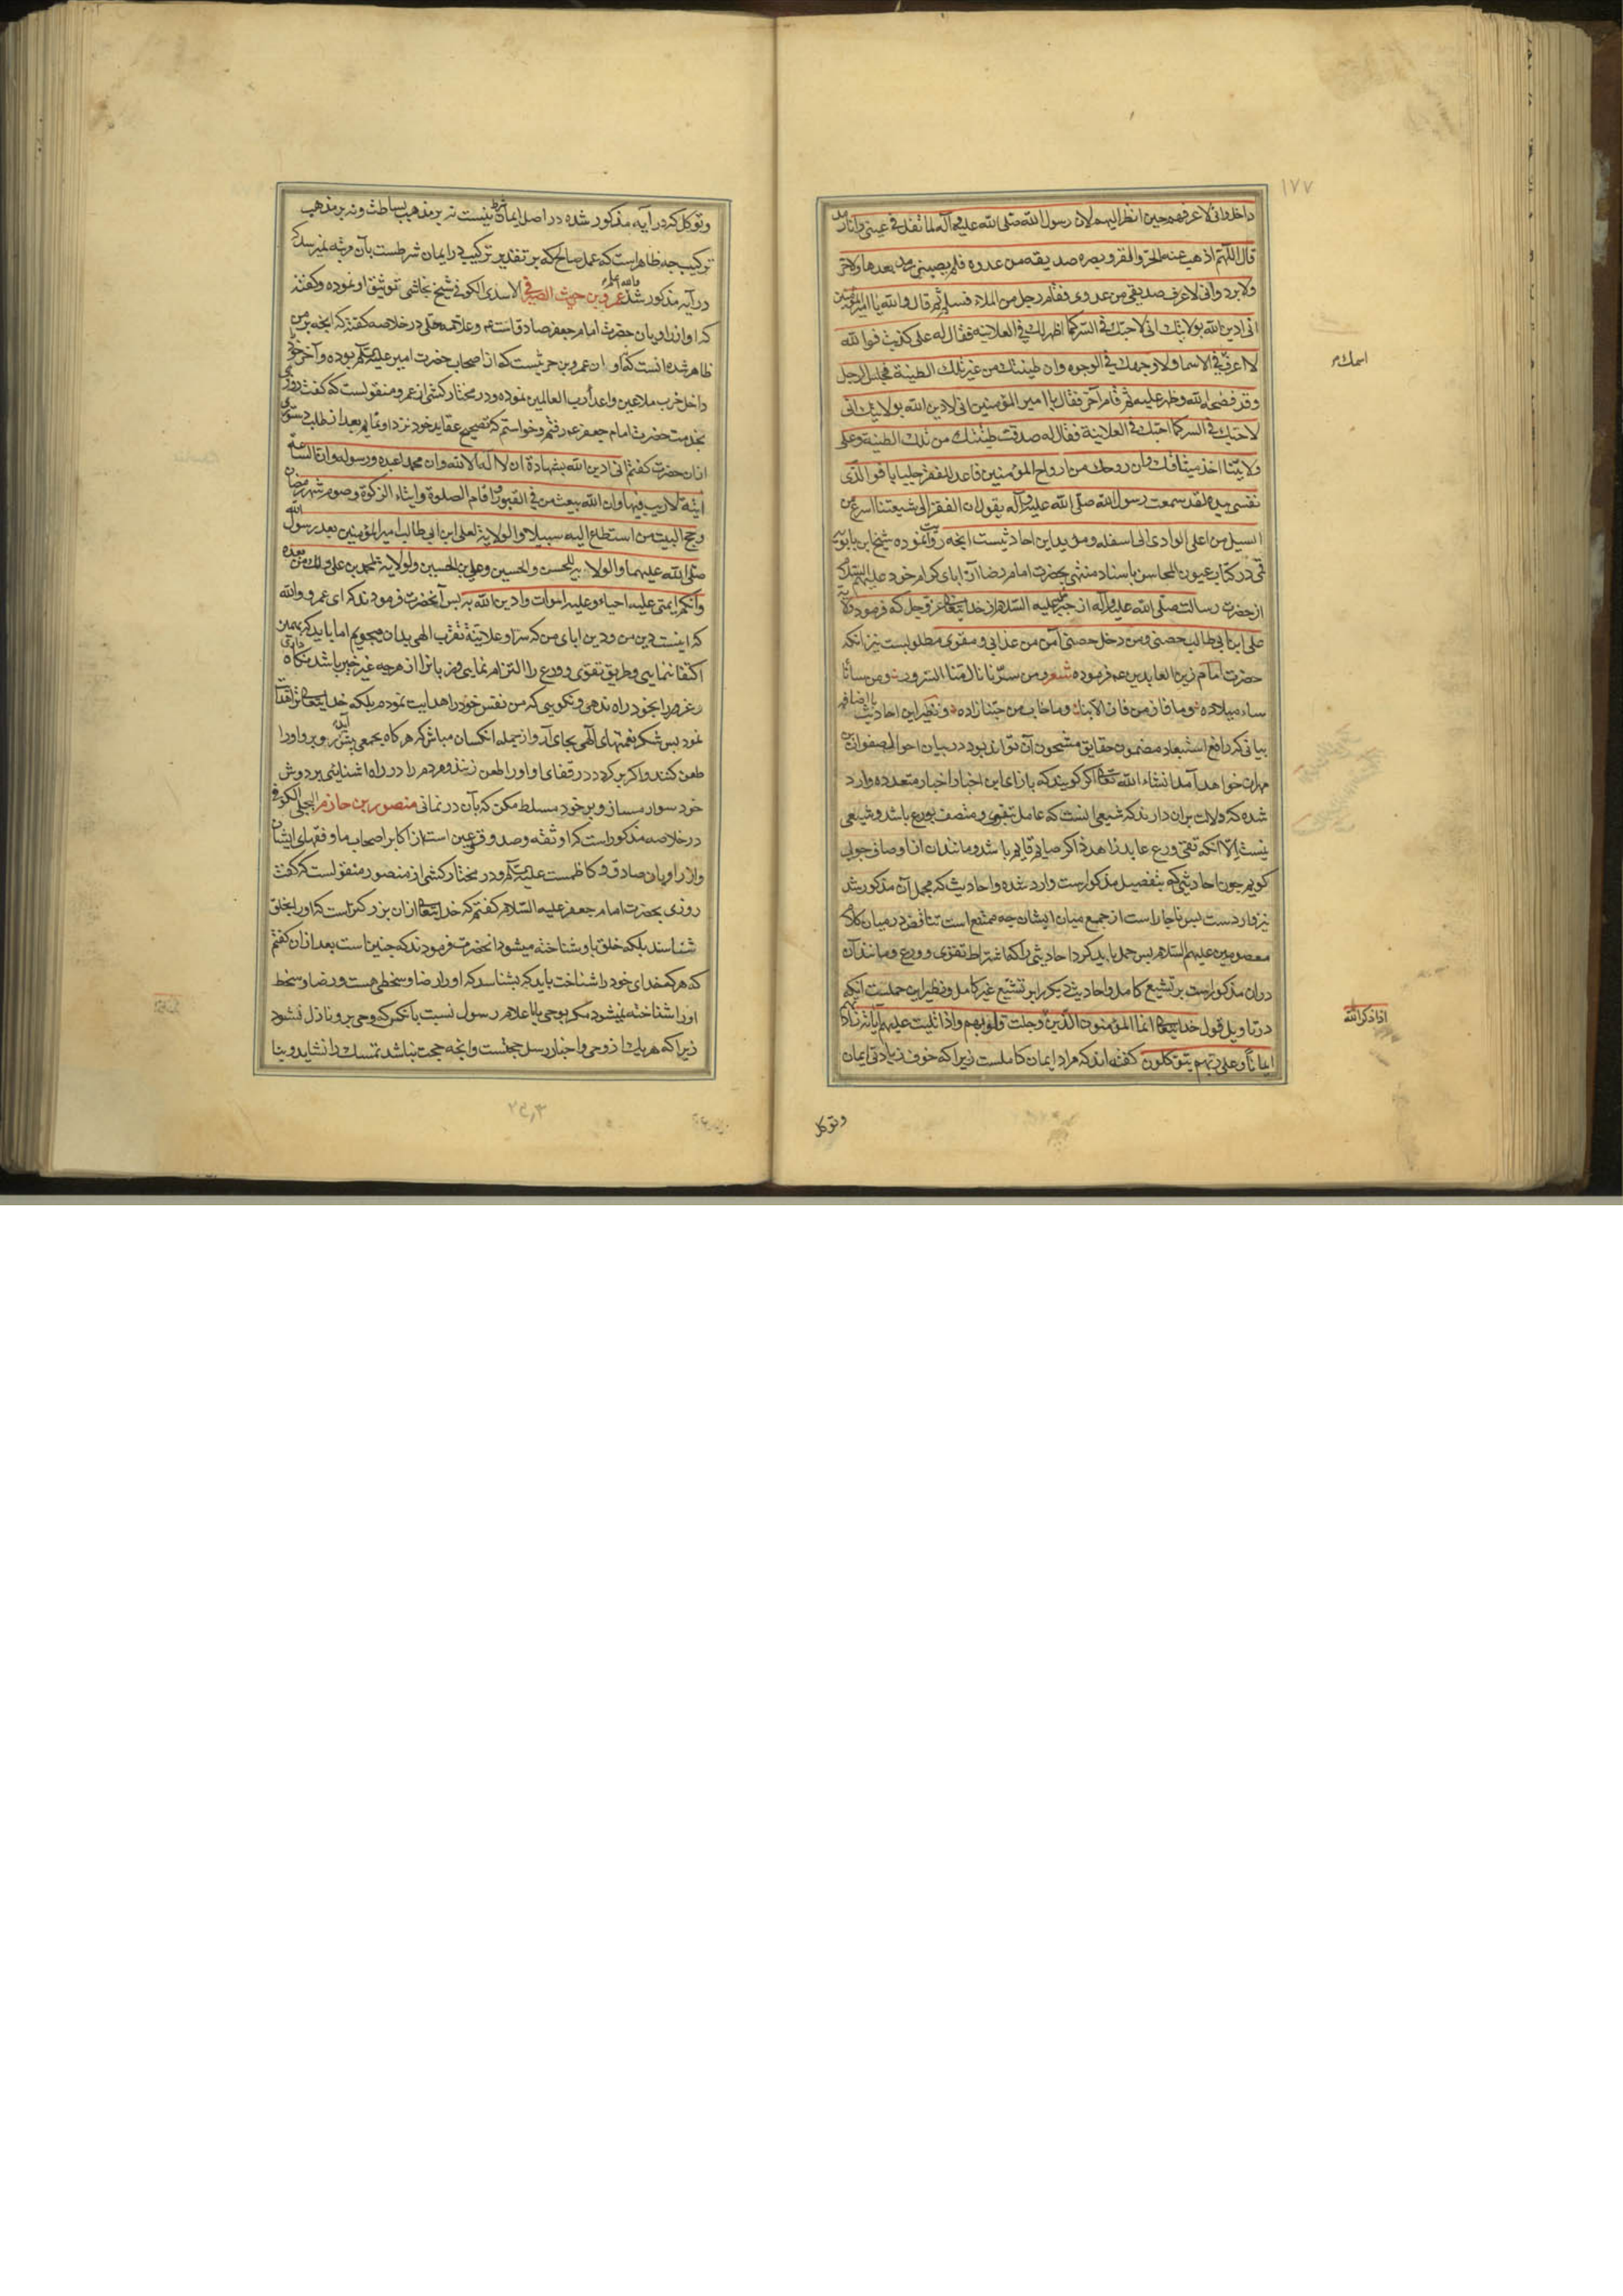 ۱۷۷
داخل وانی لاعرفهم حین انظر الیهم لان رسول الله صلی الله علیه وآله لما تفل فی عینی وانا رمد
قال اللهم اذهب عنه الحر والقر وبصره صدیقه من عدوه فلم یصبنی رمد بعدها ولا حر
ولا برد وانی لاعرف صدیقی من عدوی فقام رجل من الملاء فسلم ثم قال والله یا امیر المؤمنین
انی ادین الله بولایتک انی لاحبک فی السر کما اظهر لک فی العلانیه فقال له علی کذبت فوالله
لا اعرف فی الاسما ولا وجهک فی الوجوه وان طینتک من غیر تلک الطینة فجلس الرجل
اسمک
وقد فضحه الله وظهر علیه ثم قام آخر فقال یا امیر المؤمنین انی لادین الله بولایتک انی
لاحبک فی السر کما احبک فی العلانیة فقال له صدقت طینتک من تلک الطینة وعلی
ولایتنا اخذ میثاقک وان روحک من ارواح المؤمنین فاعد للفقر جلبابا فوالذی
نفسی بیده لقد سمعت رسول الله صلی الله علیه وآله یقول ان الفقر الی شیعتنا اسرع من
السیل من اعلی الوادی الی اسفله ومؤید این احادیثست انچه روایت نموده شیخ ابن بابویه
قمی در کتاب عیون المحاسن باسناد منتهی بحضرت امام رضا از آبای کرام خود علیهم السلام
از حضرت رسالت صلی الله علیه وآله از جبرئیل علیه السلام از خدایتعالی عز وجل که فرمود ولایة
علی ابن ابی طالب حصنی ومن دخل حصنی امن من عذابی و مقوی مطلوبست نیز انکه
حضرت امام زین العابدین عم فرموده شعر ومن سرنا نال منا السرور ومن سائنا
ساء میلاده وما فاز من فاز الا بنا وما خاب من حبنا زاده ونظیر این احادیث
بیانی که رافع استبعاد مضمون حقایق مشحون آن تواند بود در بیان احوال صفوان بن
مهران خواهد آمد انشاء الله تعالی اگر گویند که بازای این اخبار اخبار متعدده وارد
شده که دلالت بران دارند که شیعی انست که عامل تقوی و متصف بورع باشد و شیعی
نیست الا انکه تقی ورع عابد زاهد ذاکر صایم قایم باشد و مانند ان از اوصاف جواب
گویم چون احادیثی که بتفصیل مذکورست وارد شده و احادیث که مجمل آن مذکور شد
نیز واردست پس ناچار است از جمع میان ایشان چه ممتنع است تناقض در میان کلام
معصومین علیهم السلام پس حمل باید کرد احادیثی را که اشتراط تقوی و ورع و مانند آن
در ان مذکورست بر تشیع کامل و احادیث دیگر را بر تشیع غیر کامل و نظیر این حملست آنکه
در تاویل قول خدایتعالی انما المؤمنون الذین وجلت قلوبهم واذا تلیت علیهم آیاته زادتهم
اذا ذکر الله
ایمانا وعلی ربهم یتوکلون گفته اند که مراد ایمان کاملست زیرا که خوف زیادتی ایمان
وتوکل
وتوکل که در آیه مذکور شده در اصل ایمان شرط نیست نه بر مذهب بساطت و نه بر مذهب
ترکیب چه ظاهر است که عمل صالح که بر تقدیر ترکیب در ایمان شرطست بآن مرتبه نمیرسد که
در آیه مذکور شد عمرو بن حریث الصیرفی الاسدی الکوفی شیخ نجاشی توثیق او نموده و گفته
که او از راویان حضرت امام جعفر صادق است و علامه حلی در خلاصه گفته که انچه بر من
ظاهر شده انست که او ان عمرو بن حریث نیست که از اصحاب حضرت امیر علیه السلم بوده و آخر خود
داخل حزب ملاعین واعداء رب العالمین نموده و در مختار کشی از عمرو منقولست که گفت روزی
بخدمت حضرت امام جعفر ع در رفتم و خواستم که تصحیح عقاید خود نزد او نمایم بعد از طلب دستوری
از ان حضرت گفتم انی ادین الله بشهادة ان لا اله الا الله وان محمدا عبده ورسوله وان الساعة
اتیة لا ریب فیها وان الله یبعث من فی القبور واقام الصلوة وایتاء الزکوة وصوم شهر رمضان
وحج البیت من استطاع الیه سبیلا والولایة لعلی ابن ابی طالب امیر المؤمنین بعد رسول الله
صلی الله علیهما والولایة للحسن والحسین وعلی بن الحسین والولایة لمحمد بن علی ولک من بعده
وانکم ایمتی علیه احیاء وعلیه اموات وادین الله به پس آنحضرت فرمودند که ای عمرو والله
که اینست دین من و دین ابای من که سرا وعلانیة تقرب الهی بدان میجویم اما باید که بهمین
اکتفا ننمایی وطریق تقوی و ورع را التزام نمایی و زبانرا از هر چه غیر خیر باشد نگاه داری
نمود پس شکر نعمتهای الهی بجای آر و از جمله انکسان مباش که هر گاه بجمعی پیش آید بر رو او را
طعن کنند و اگر بر گردد در قفای او او را لعن زنند و مردم را در راه اشنایی بر دوش
خود سوار مساز و بر خود مسلط مکن که بآن در نمانی منصور بن حازم البجلی الکوفی
در خلاصه مذکور است که او ثقه وصدوق و عین است از اکابر اصحاب ما و فقهای ایشان
واز راویان صادق و کاظمست علیهما السلم و در مختار کشی از منصور منقولست که گفت
روزی بحضرت امام جعفر علیه السلام گفتم که خدایتعالی ازان بزرگتر است که او را بخلق
شناسند بلکه خلق باو شناخته میشود انحضرت فرمودند که چنین است بعد ازان گفتم
که هر که خدای خود را شناخت باید که بشناسد که او را رضا و سخطی هست و رضا و سخط
او را شناخته نمیشود مگر بوحی یا باعلام رسول نسبت بانکس که وحی برو نازل نشود
زیرا که هر یک از وحی و اخبار رسل حجتست وانچه حجت نباشد تمسک را نشاید و بنا